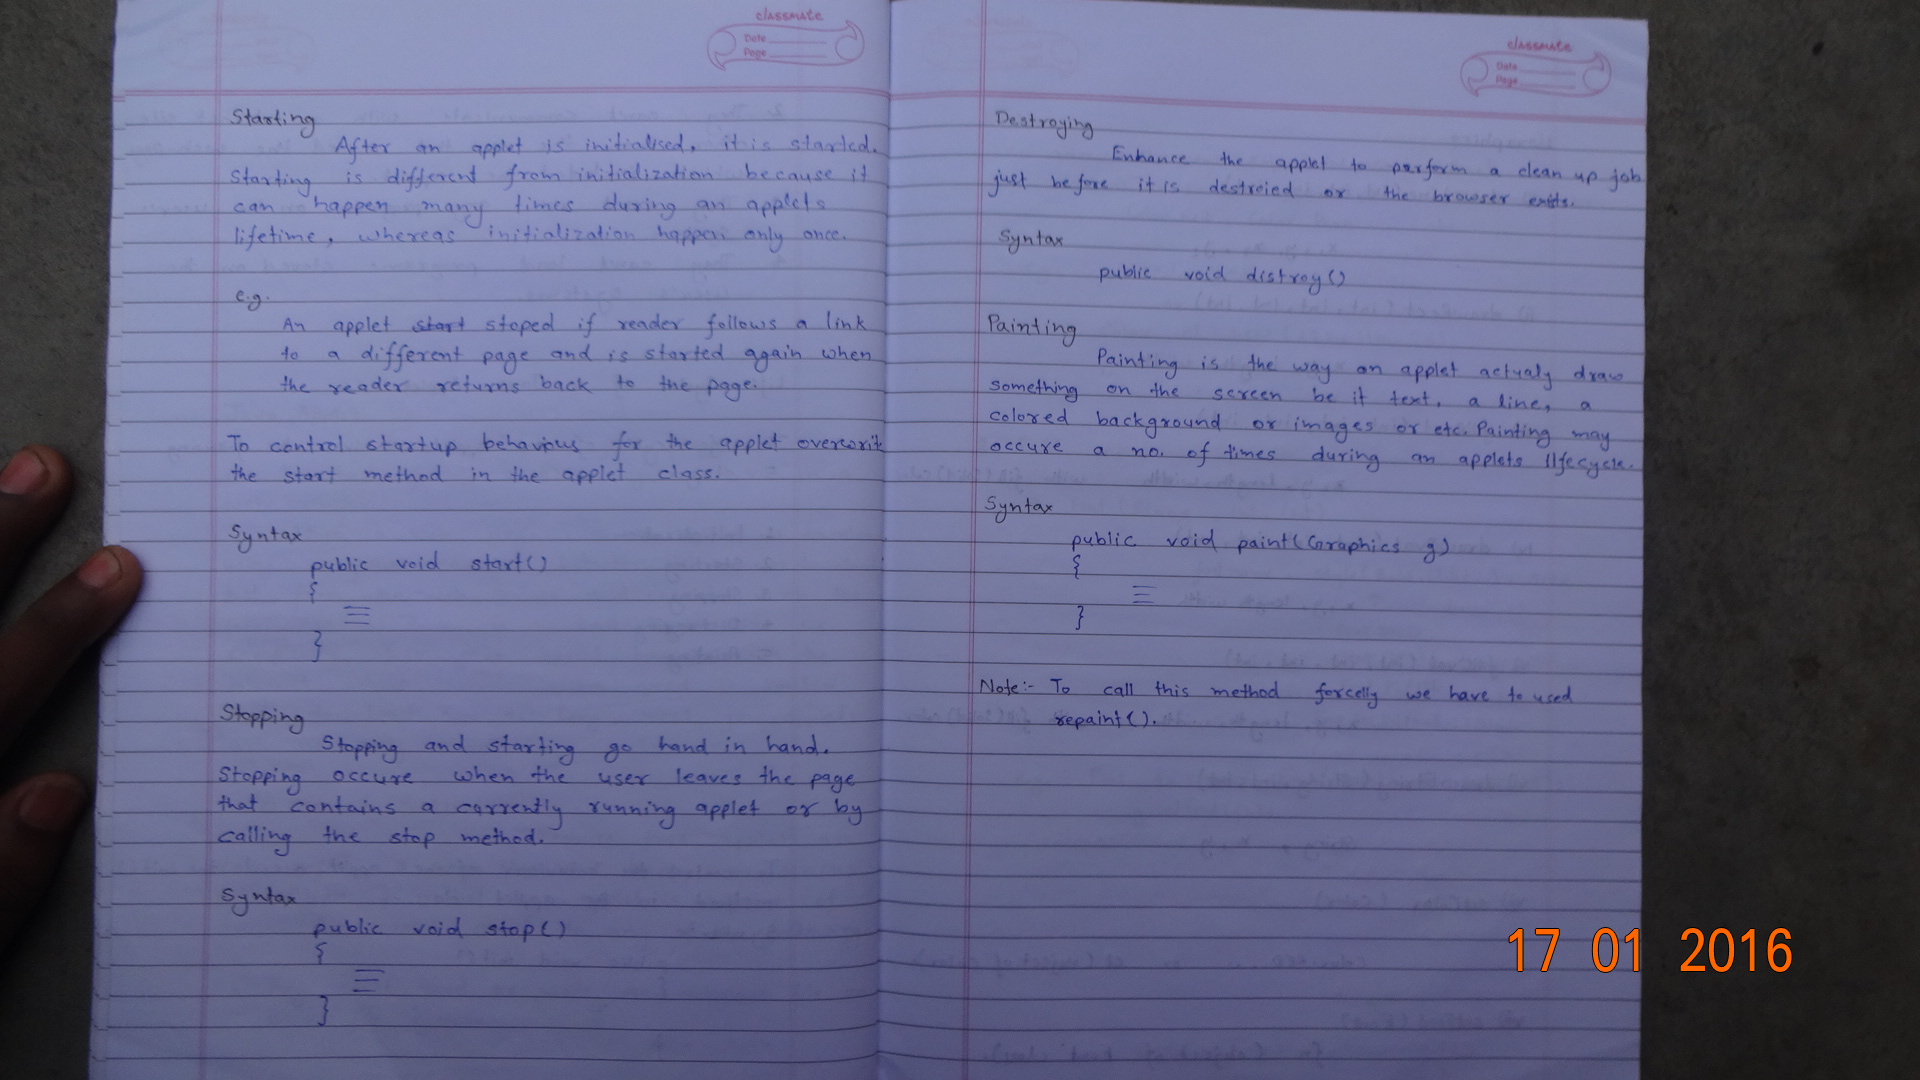 classmate
Date
Page
Starting
After an applet is initialised, it is started.
Starting is different from initialization because it
can happen many times during an applets
lifetime, whereas initialization happen only once.
e.g.
An applet start stoped if reader follows a link
to a different page and is started again when
the reader returns back to the page.
To control startup behaviour for the applet overwrite
the start method in the applet class.
Syntax
public void start()
{
}
Stopping
Stopping and starting go hand in hand.
Stopping occure when the user leaves the page
that contains a currently running applet or by
calling the stop method.
Syntax
public void stop()
{
}
classmate
Date
Page
Destroying
Enhance the applet to perform a clean up job
just before it is destroied or the browser exits.
Syntax
public void distroy()
Painting
Painting is the way an applet actualy draw
something on the screen be it text, a line, a
colored background or images or etc. Painting may
occure a no. of times during an applets lifecycle.
Syntax
public void paint(Graphics g)
{
}
Note:- To call this method forcelly we have to used
repaint().
17 01 2016